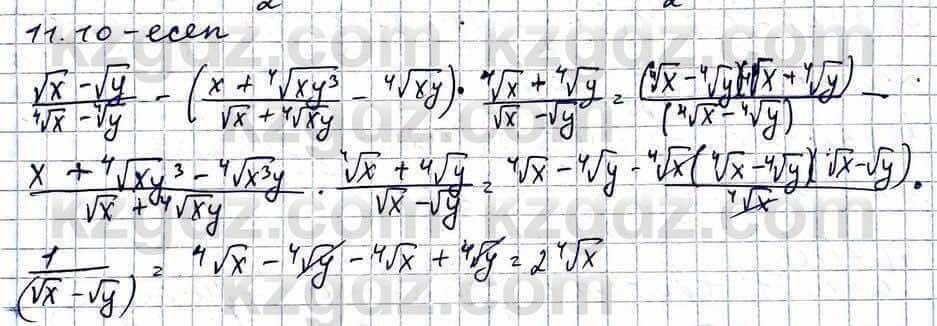 11.10-есеп
(√x - √y)/(⁴√x - ⁴√y) - ((x + ⁴√xy³)/(√x + ⁴√xy) - ⁴√xy) · (⁴√x + ⁴√y)/(√x - √y) = ((⁴√x - ⁴√y)(⁴√x + ⁴√y))/((⁴√x - ⁴√y)) -
(x + ⁴√xy³ - ⁴√x³y)/(√x + ⁴√xy) · (⁴√x + ⁴√y)/(√x - √y) = ⁴√x - ⁴√y - (⁴√x(⁴√x - ⁴√y)(√x - √y))/(⁴√x) ·
1/(√x - √y) = ⁴√x - ⁴√y - ⁴√x + ⁴√y = 2⁴√x
kzgdz.com